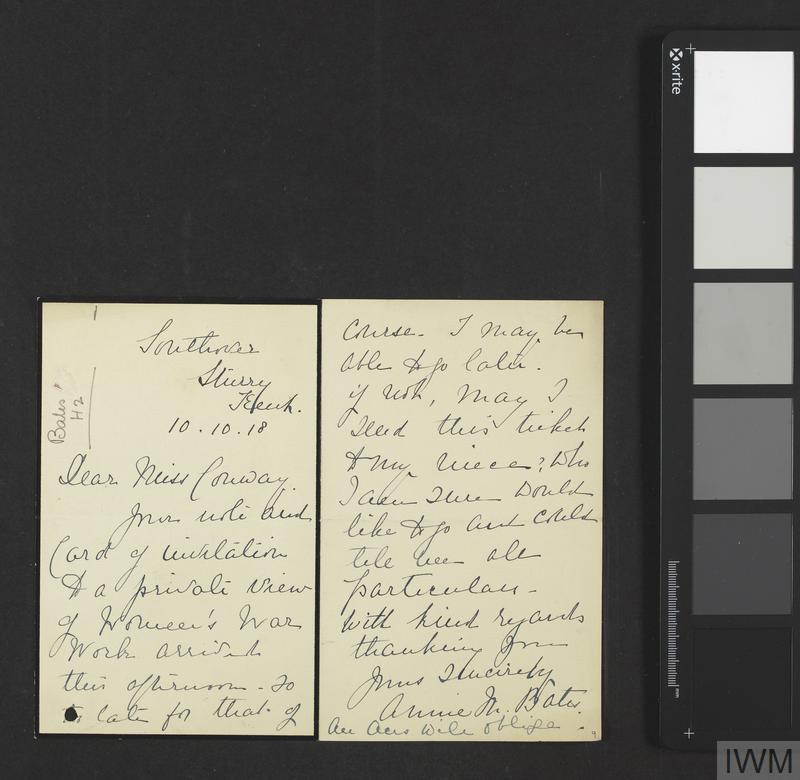 Southover
Sturry
Kent.
10.10.18
Bates
H2
Dear Miss Conway.
Your note and
Card of invitation
to a private view
of Women's War
Work arrived
this afternoon - so
late for that. of
course - I may be
able to go later.
if not, may I
send this ticket
to my niece?, who
I am sure would
like to go and could
tell me all
particulars -
With kind regards
thanking you
Yours sincerely
Annie M. Bates.
An Ans will oblige.
x-rite
mm
IWM